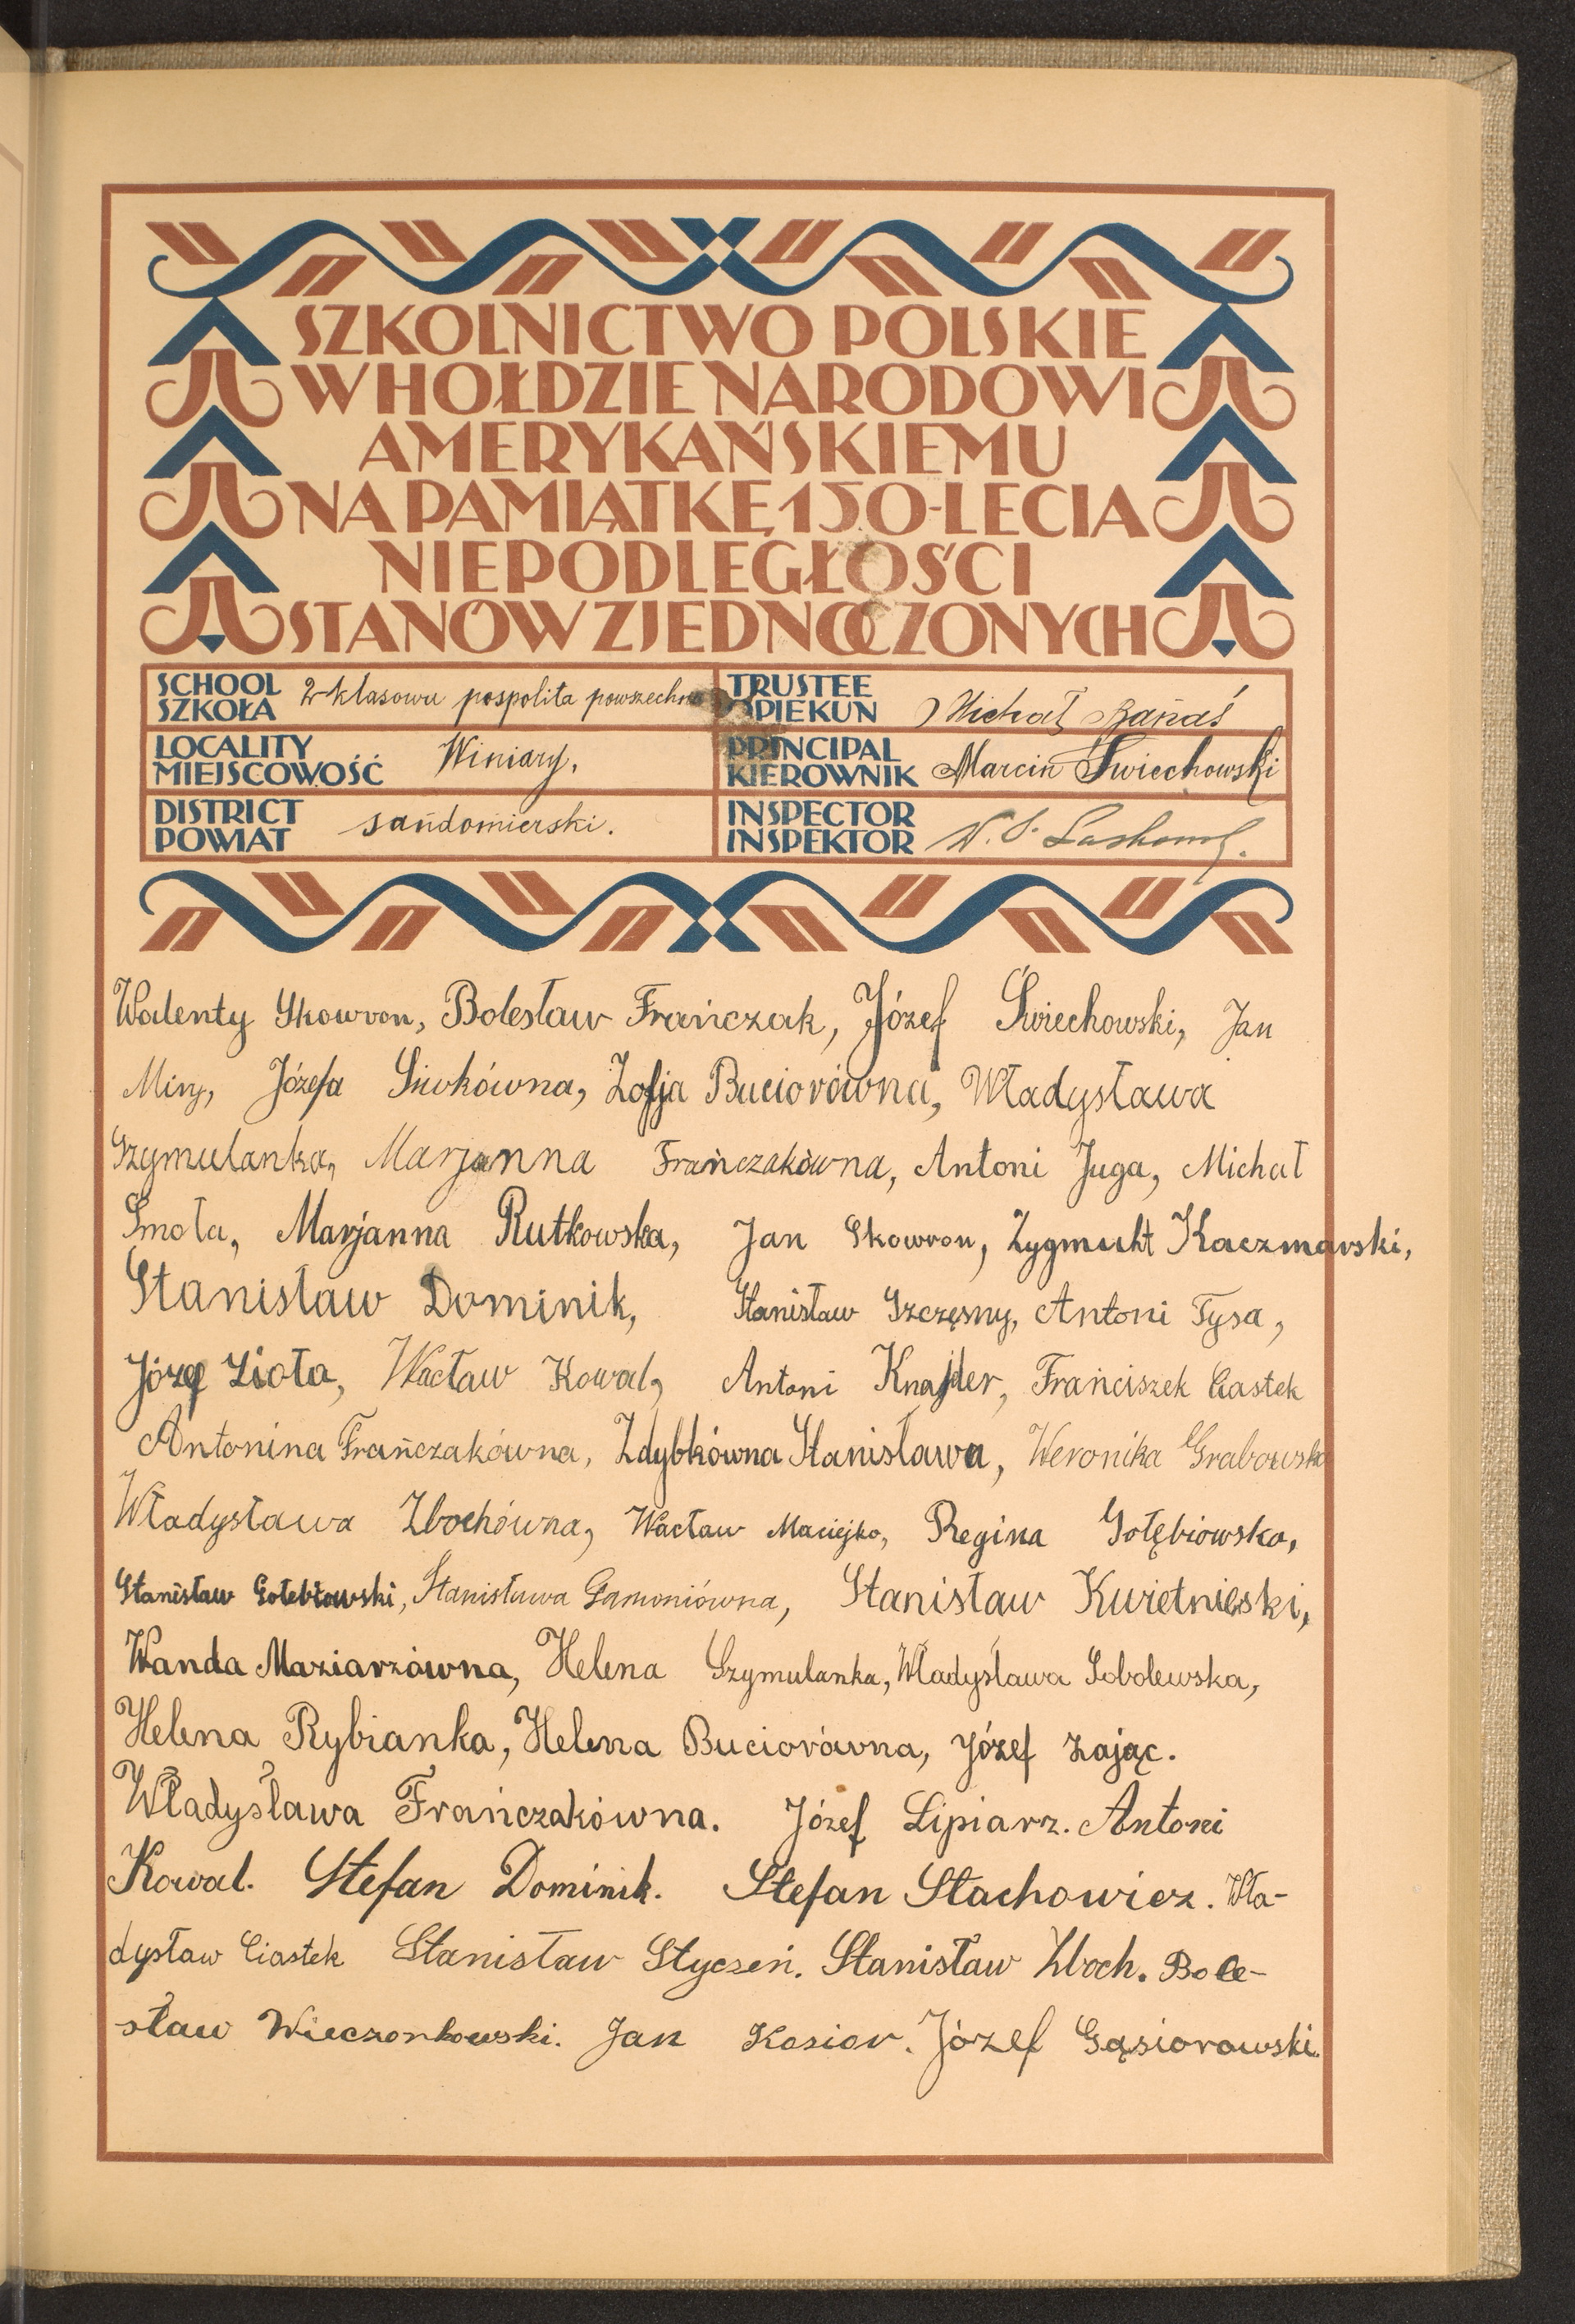 SZKOLNICTWO POLSKIE
W HOŁDZIE NARODOWI
AMERYKAŃSKIEMU
NA PAMIĄTKĘ 150-LECIA
NIEPODLEGŁOŚCI
STANÓW ZJEDNOCZONYCH
SCHOOL
SZKOŁA
2-klasowa pospolita powszechna
TRUSTEE
OPIEKUN
Michał Banaś
LOCALITY
MIEJSCOWOŚĆ
Winiary.
PRINCIPAL
KIEROWNIK
Marcin Świechowski
DISTRICT
POWIAT
sandomierski.
INSPECTOR
INSPEKTOR
Walenty Skowron, Bolesław Frańczak, Józef Świechowski, Jan
Miry, Józefa Siwkówna, Zofja Buciorówna, Władysława
Szymulanka, Marjanna Frańczakówna, Antoni Juga, Michał
Smoła, Marjanna Rutkowska, Jan Skowron, Zygmunt Kaczmarski,
Stanisław Dominik, Stanisław Szczęsny, Antoni Tysa,
Józef Zioła, Wacław Kowal, Antoni Knajder, Franciszek Ciastek
Antonina Frańczakówna, Zdybkówna Stanisława, Weronika Grabowska
Władysława Zbochówna, Wacław Maciejko, Regina Gołębiowska,
Stanisław Gołebiowski, Stanisława Gamoniówna, Stanisław Kwietniewski,
Wanda Maziarzówna, Helena Szymulanka, Władysława Sobolewska,
Helena Rybianka, Helena Buciorówna, Józef Zając.
Władysława Frańczakówna. Józef Lipiarz. Antoni
Kowal. Stefan Dominik. Stefan Stachowicz. Wła-
dysław Ciastek Stanisław Styczeń. Stanisław Zboch. Bole-
sław Wieczorkowski. Jan Kosior. Józef Gąsiorowski.